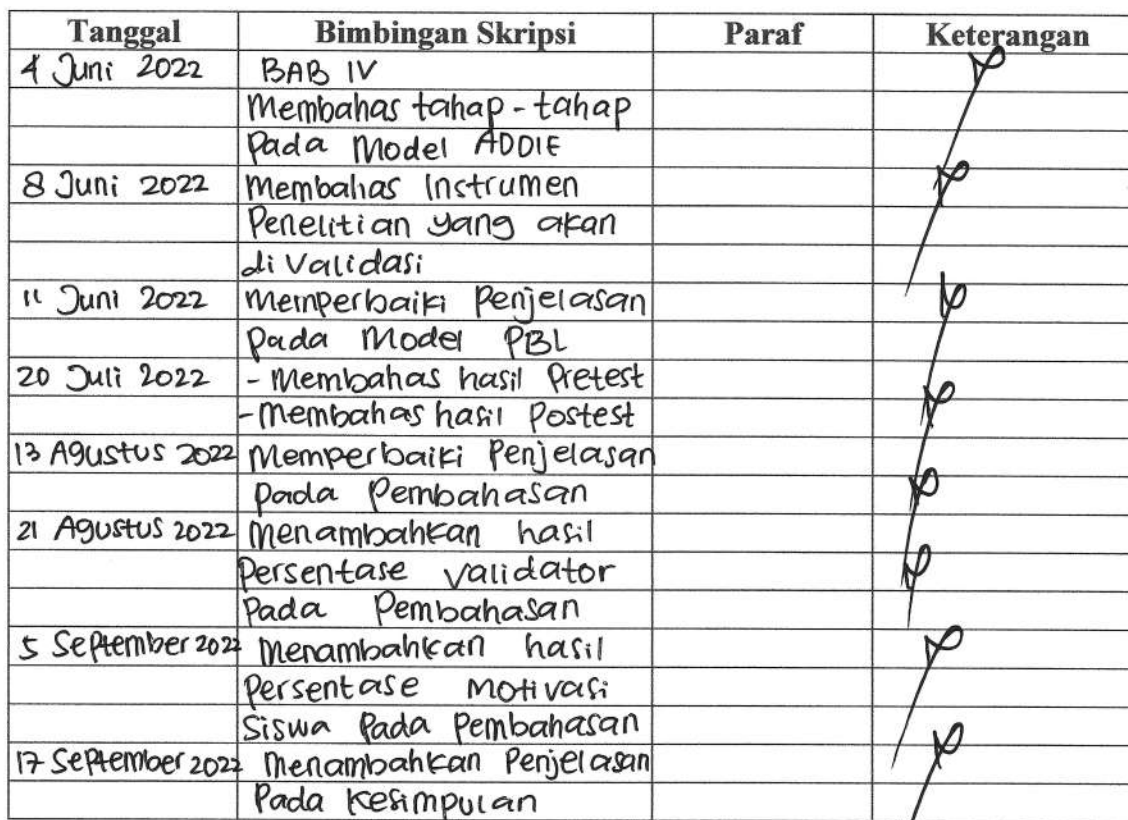 Tanggal Bimbingan Skripsi Paraf Keterangan
4 Juni 2022 BAB IV
Membahas tahap-tahap
Pada Model ADDIE
8 Juni 2022 Membahas Instrumen
Penelitian yang akan
di Validasi
11 Juni 2022 Memperbaiki Penjelasan
pada Model PBL
20 Juli 2022 - Membahas hasil Pretest
- Membahas hasil Postest
13 Agustus 2022 Memperbaiki Penjelasan
pada Pembahasan
21 Agustus 2022 Menambahkan hasil
Persentase validator
Pada Pembahasan
5 September 2022 Menambahkan hasil
Persentase Motivasi
Siswa Pada Pembahasan
17 September 2022 Menambahkan Penjelasan
Pada Kesimpulan